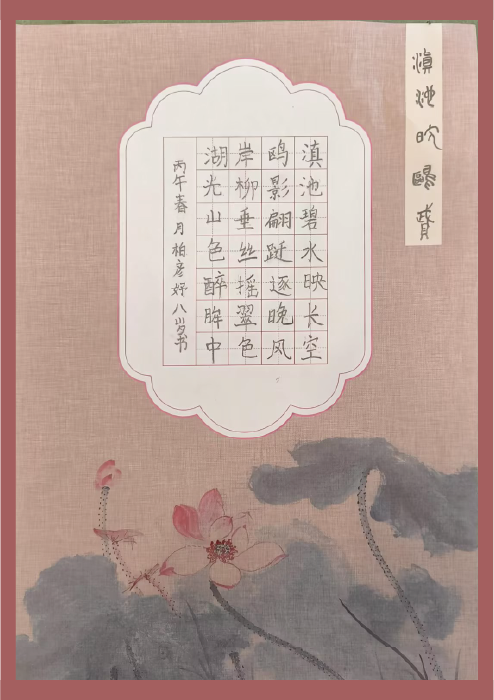 滇池鸥
滇池碧水映长空
鸥影翩跹逐晚风
岸柳垂丝摇翠色
湖光山色醉眸中
丙午春月柏彦妤八岁书